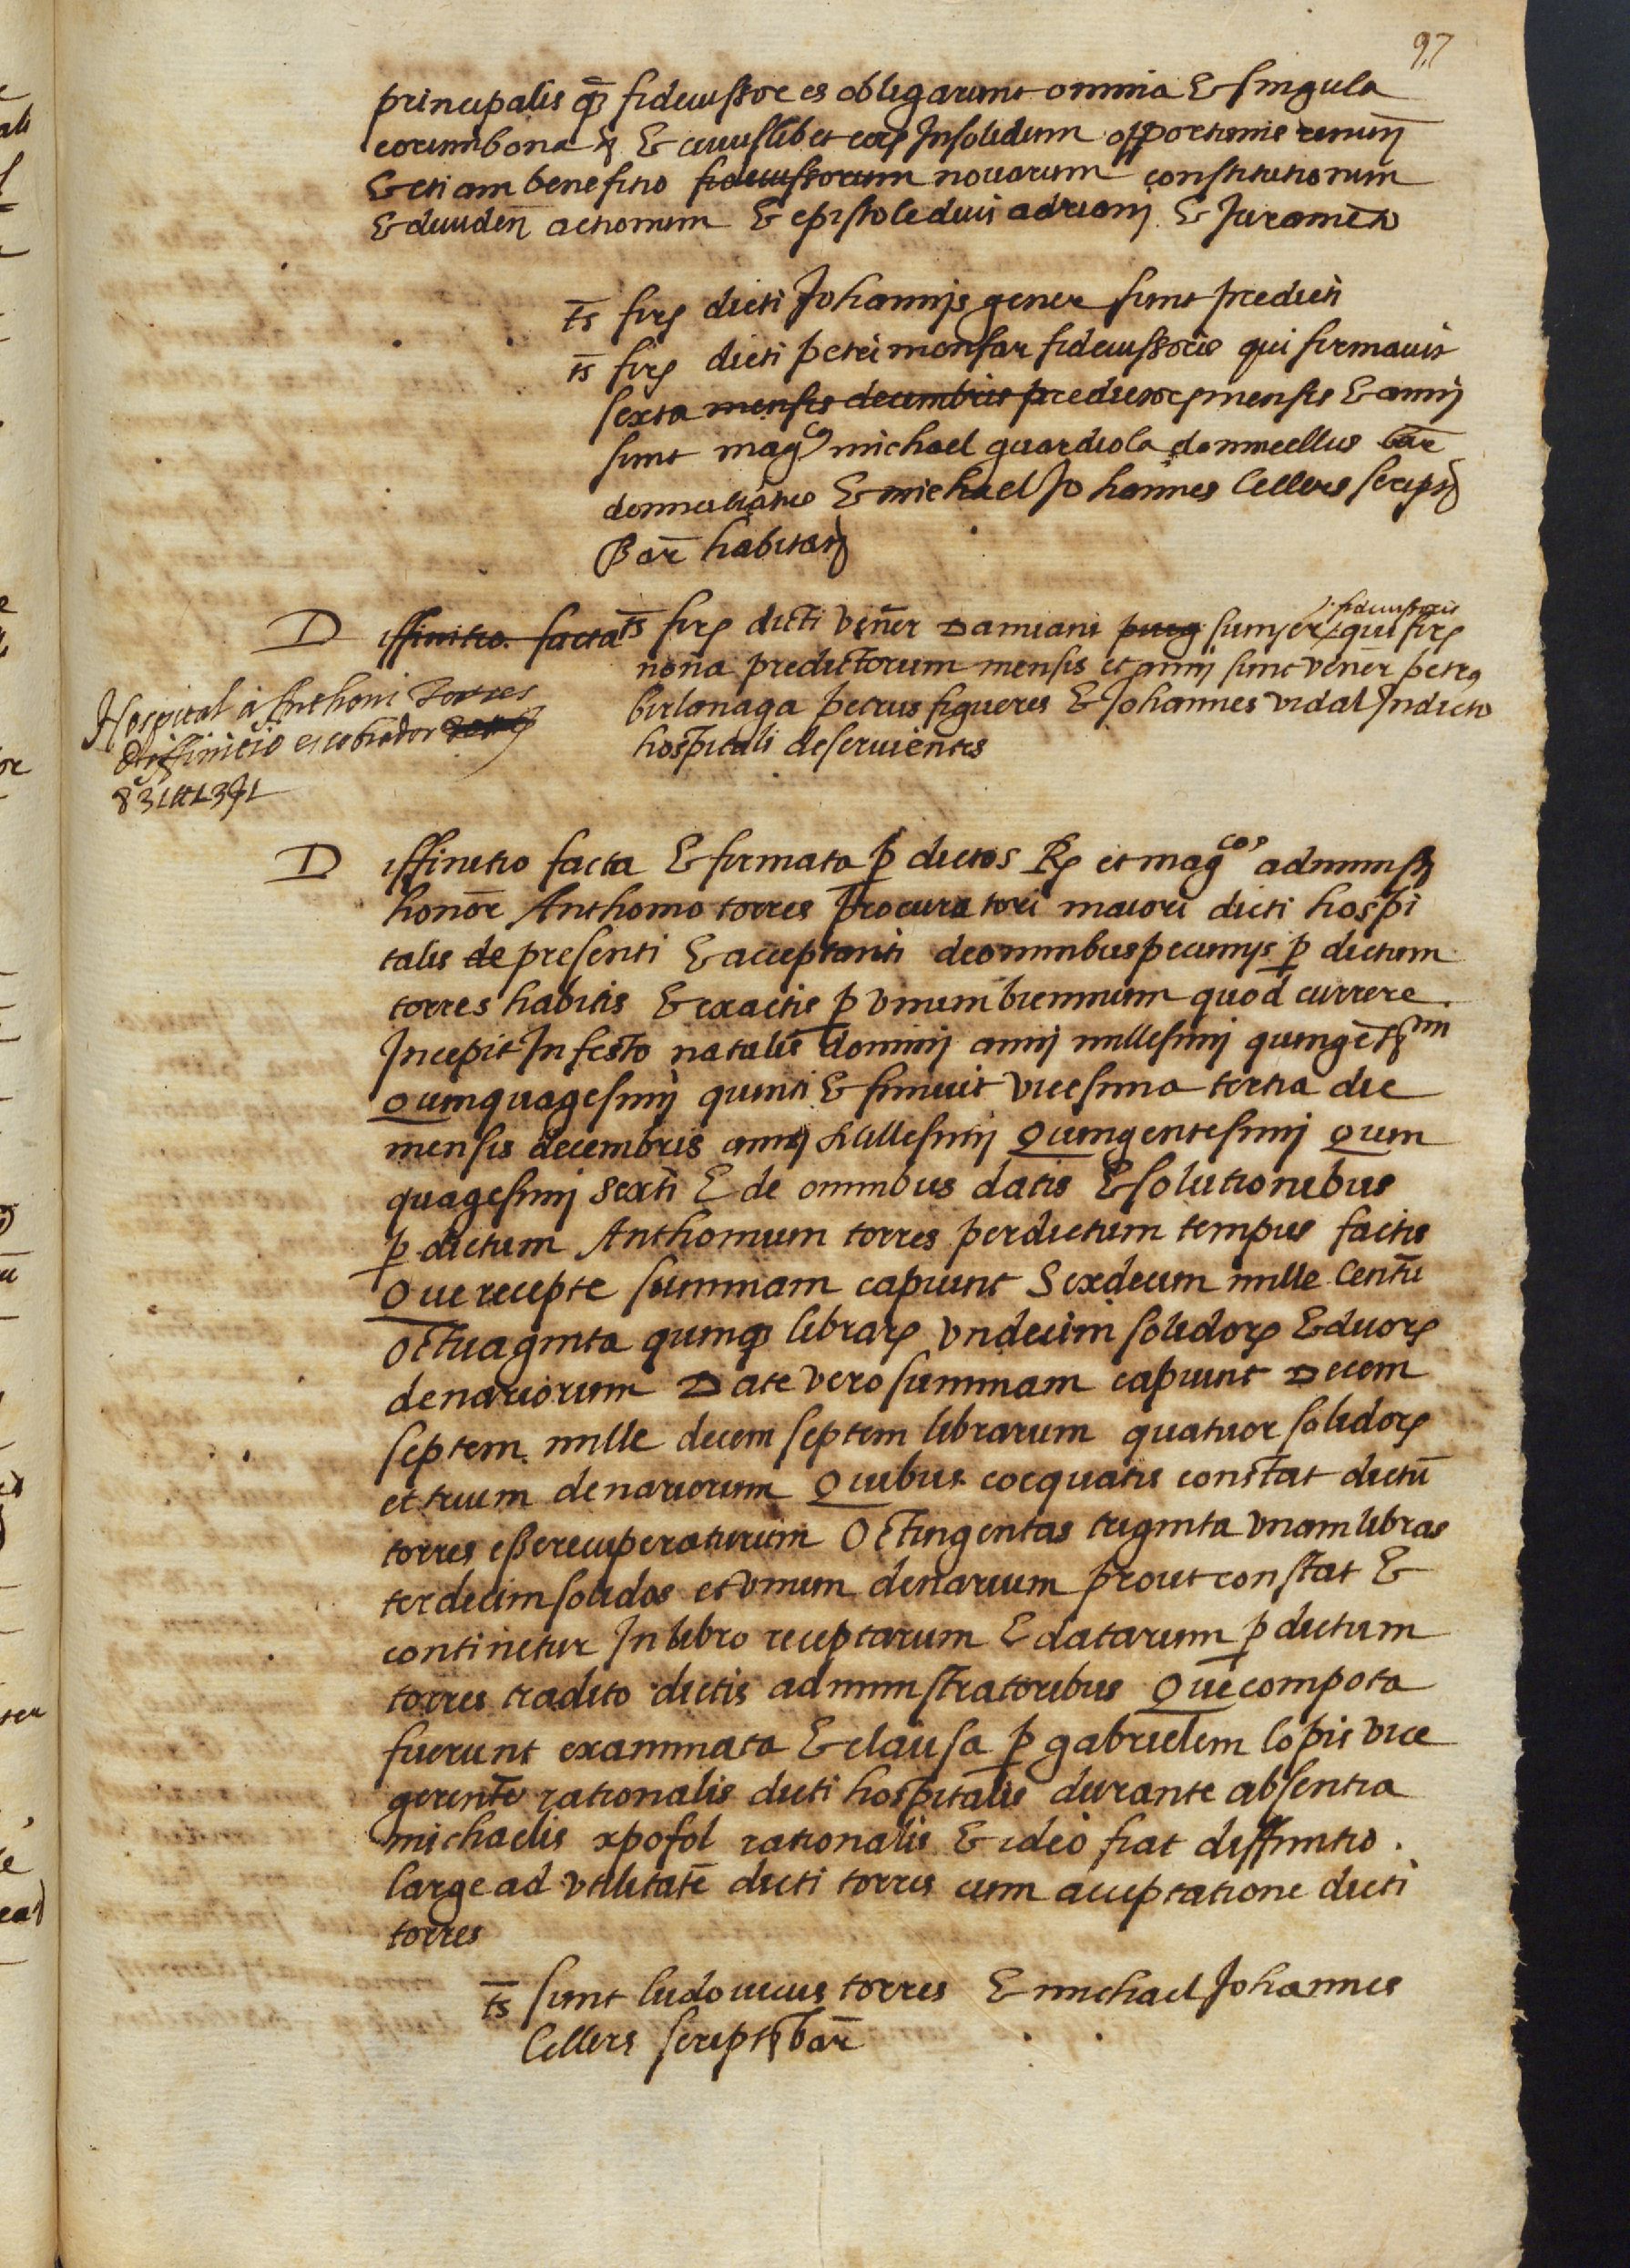 97
principalis q̃ȝ fideiussores obligarunt omnia & singula
eorum bona & cuiuslibet eoꝝ Insolidum opportunis renunĩ
& etiam benefitio fideiussorum novarum constitutionum
& dividenĩ actionum & epistole divi adriani & Juramẽto
t̄s firꝫ dicti Johannis gener sunt predicti
t̄s firꝫ dicti petri monfar fideiussoris qui firmavit
sexta mensis decembris predictoꝝ mensis & anni
sunt mag^cus michael guardiola domicellus bar̄
domiciliatus & michael Johannes Cellers script
Bar̄ habitat
D iffinitio. facta
t̄s firꝫ dicti Vener̄ Damiani puig sunyer fideiussoris qui firꝫ
nona predictorum mensis et anni sunt vener̄ petrꝰ
birlanaga petrus figueres & Johannes vidal In dicto
hospitali deservientes
Hospital á Anthoni Torres
diffinitio es cobrador
831 ℔ 13 ß 1
D iffinitio facta & firmata ꝑ dictos Rꝫ et mag^cos administ
honor̄ Anthonio torres procuratori maiori dicti hospi
talis de presenti & acceptanti de omnibus pecunijs ꝑ dictum
torres habitis & exactis ꝑ unum biennium quod currere
Incepit In festo natalis domini anni millesimi quingẽt^mi
Quinquagesimi quinti & finivit vicesima tertia die
mensis decembris anni Millesimi Quingentesimi Quin
quagesimi sexti & de omnibus datis & solutionibus
ꝑ dictum Anthonium torres per dictum tempus factis
Que recepte summam capiunt Sexdecim mille Centũ
octuaginta quinqꝫ libraꝝ undecim solidoꝝ & duoꝝ
denariorum Date vero summam capiunt Decem
septem mille decem septem librarum quatuor solidoꝝ
et trium denariorum Quibus coequatis constat dictũ
torres esse recuperaturum Octingentas triginta unam libras
terdecim solidos et unum denarium prout constat &
continetur In libro receptarum & datarum ꝑ dictum
torres tradito dictis administratoribus Que compota
fuerunt examinata & clausa ꝑ gabrielem lopis vice
gerente rationalis dicti hospitalis durante absentia
michaelis xpofol rationalis & ideo fiat diffinitio.
large ad utilitatẽ dicti torres cum acceptatione dicti
torres
t̄s sunt ludovicus torres & michael Johannes
Cellers script bar̄